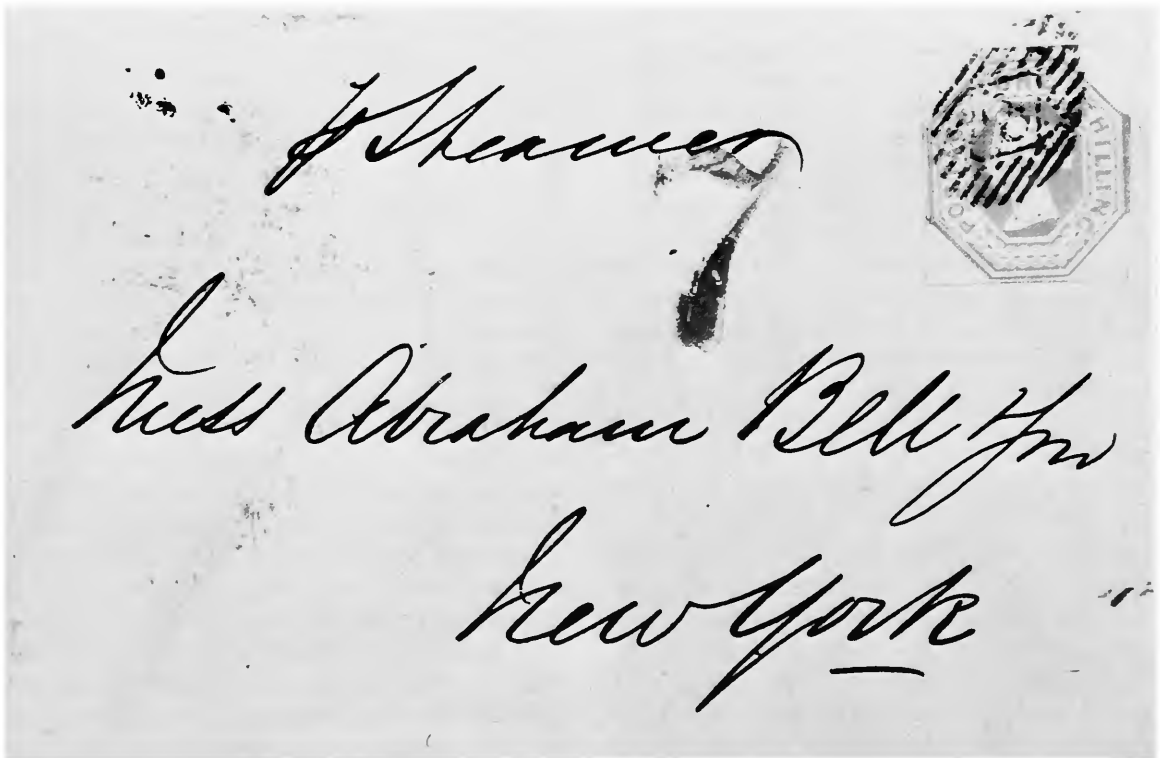 p Steamer
7
Mess Abraham Bell & Son
New York
PO ONE SHILLING